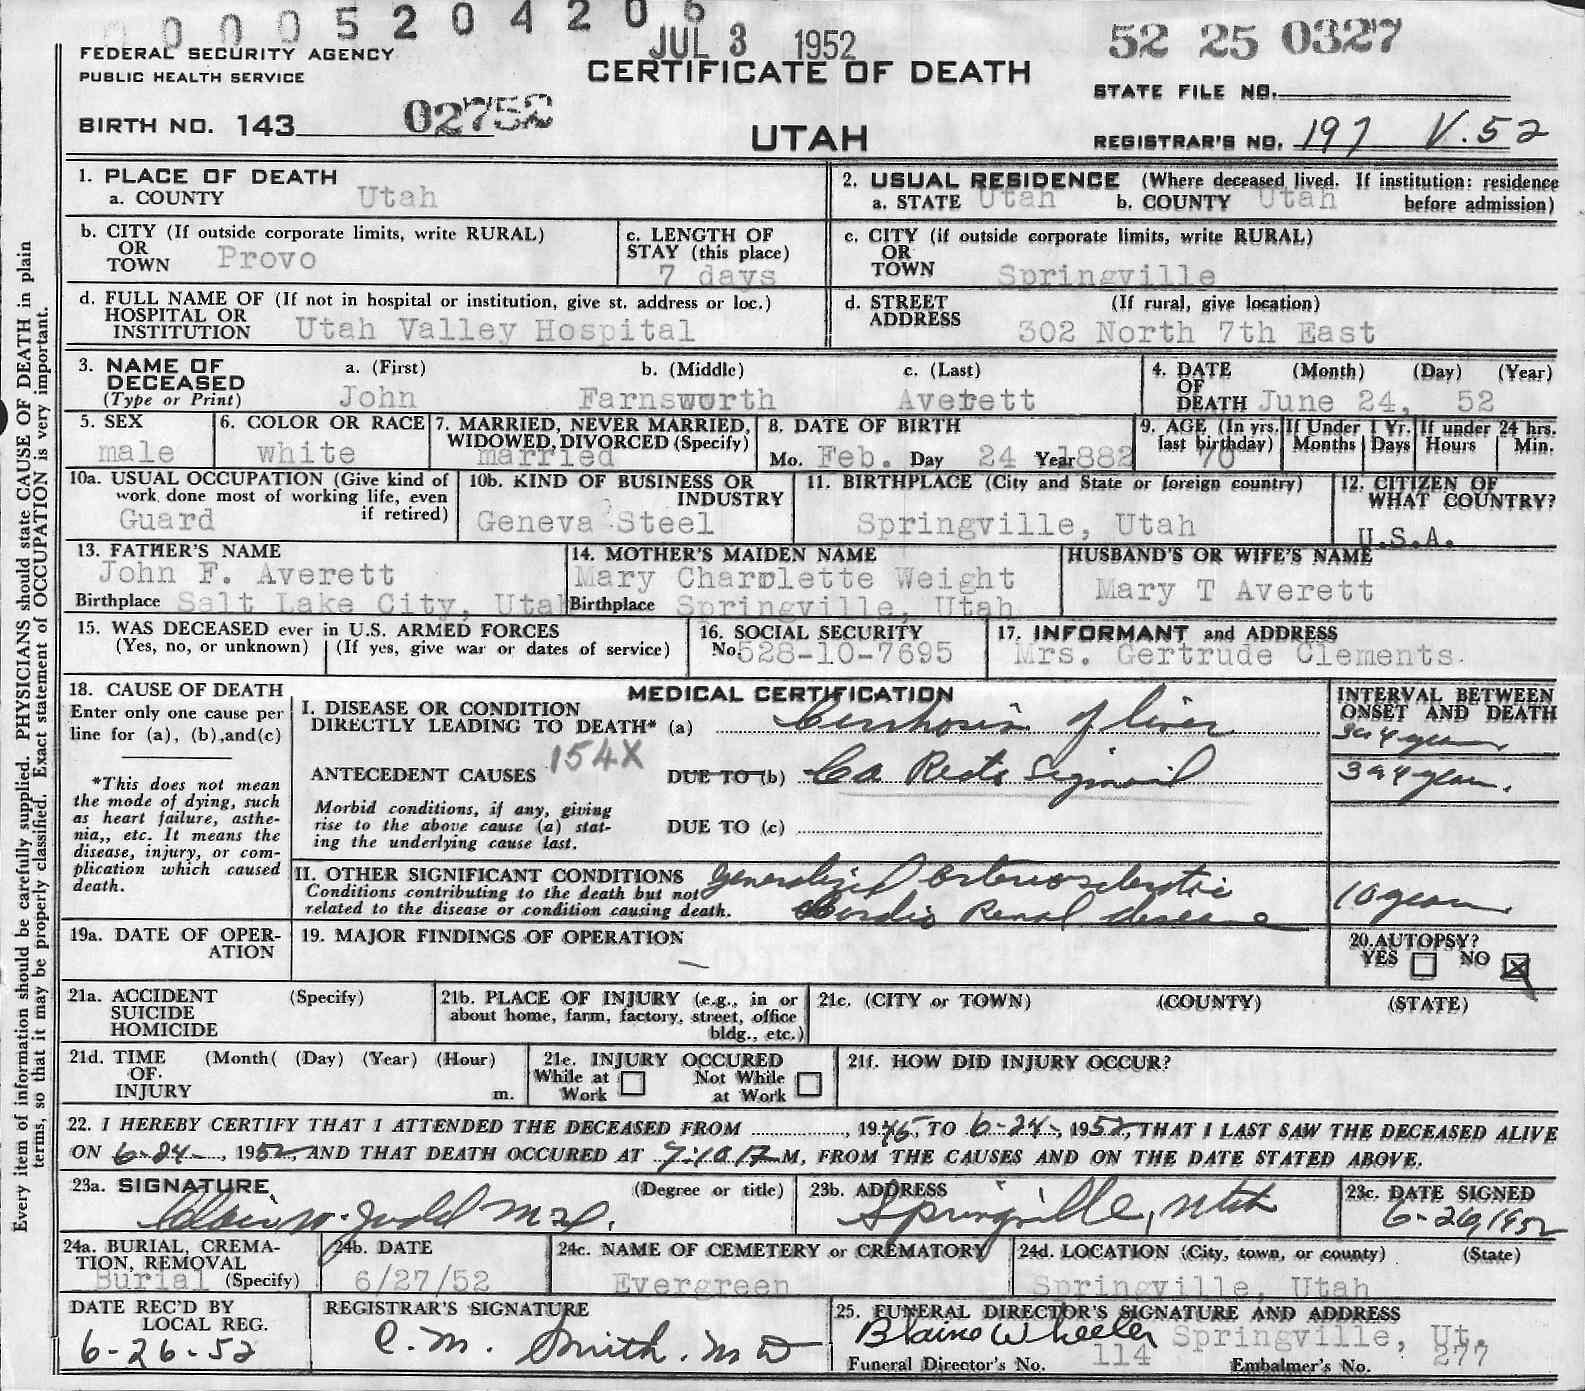 0005204206
JUL 3 1952
52 25 0327
FEDERAL SECURITY AGENCY
PUBLIC HEALTH SERVICE
CERTIFICATE OF DEATH
STATE FILE NO.
BIRTH NO. 143 02752
UTAH
REGISTRAR'S NO. 197 V.52
Every item of information should be carefully supplied. PHYSICIANS should state CAUSE OF DEATH in plain
terms, so that it may be properly classified. Exact statement of OCCUPATION is very important.
1. PLACE OF DEATH
a. COUNTY Utah
2. USUAL RESIDENCE (Where deceased lived. If institution: residence
a. STATE Utah b. COUNTY Utah before admission)
b. CITY (If outside corporate limits, write RURAL)
OR
TOWN Provo
c. LENGTH OF
STAY (this place)
7 days
c. CITY (if outside corporate limits, write RURAL)
OR
TOWN Springville
d. FULL NAME OF (If not in hospital or institution, give st. address or loc.)
HOSPITAL OR
INSTITUTION Utah Valley Hospital
d. STREET (If rural, give location)
ADDRESS 302 North 7th East
3. NAME OF
DECEASED
(Type or Print)
a. (First) b. (Middle) c. (Last)
John Farnsworth Averett
4. DATE (Month) (Day) (Year)
OF
DEATH June 24, 52
5. SEX
male
6. COLOR OR RACE
white
7. MARRIED, NEVER MARRIED,
WIDOWED, DIVORCED (Specify)
married
8. DATE OF BIRTH
Mo. Feb. Day 24 Year 882
9. AGE (In yrs. If Under 1 Yr. If under 24 hrs.
last birthday) Months Days Hours Min.
70
10a. USUAL OCCUPATION (Give kind of
work done most of working life, even
if retired)
Guard
10b. KIND OF BUSINESS OR
INDUSTRY
Geneva Steel
11. BIRTHPLACE (City and State or foreign country)
Springville, Utah
12. CITIZEN OF
WHAT COUNTRY?
U.S.A.
13. FATHER'S NAME
John F. Averett
Birthplace Salt Lake City, Utah
14. MOTHER'S MAIDEN NAME
Mary Charolette Weight
Birthplace Springville, Utah
HUSBAND'S OR WIFE'S NAME
Mary T Averett
15. WAS DECEASED ever in U.S. ARMED FORCES
(Yes, no, or unknown) (If yes, give war or dates of service)
16. SOCIAL SECURITY
No. 528-10-7695
17. INFORMANT and ADDRESS
Mrs. Gertrude Clements.
18. CAUSE OF DEATH
Enter only one cause per
line for (a), (b), and (c)
*This does not mean
the mode of dying, such
as heart failure, asthe-
nia,, etc. It means the
disease, injury, or com-
plication which caused
death.
MEDICAL CERTIFICATION
I. DISEASE OR CONDITION
DIRECTLY LEADING TO DEATH* (a) Cirrhosis of liver
154X
ANTECEDENT CAUSES DUE TO (b) Ca Recto Sigmoid
Morbid conditions, if any, giving
rise to the above cause (a) stat-
ing the underlying cause last.
DUE TO (c)
INTERVAL BETWEEN
ONSET AND DEATH
3 or 4 years
3 or 4 years.
II. OTHER SIGNIFICANT CONDITIONS
Conditions contributing to the death but not
related to the disease or condition causing death.
generalized arteriosclerotic
Cardio Renal disease
10 years
19a. DATE OF OPER-
ATION
19. MAJOR FINDINGS OF OPERATION
—
20. AUTOPSY?
YES NO X
21a. ACCIDENT (Specify)
SUICIDE
HOMICIDE
21b. PLACE OF INJURY (e.g., in or
about home, farm, factory, street, office
bldg., etc.)
21c. (CITY or TOWN) (COUNTY) (STATE)
21d. TIME (Month( (Day) (Year) (Hour)
OF.
INJURY m.
21e. INJURY OCCURED
While at Work Not While at Work
21f. HOW DID INJURY OCCUR?
22. I HEREBY CERTIFY THAT I ATTENDED THE DECEASED FROM ............, 1945, TO 6-24-, 1952, THAT I LAST SAW THE DECEASED ALIVE
ON 6-24-, 1952, AND THAT DEATH OCCURED AT 7:10 P M, FROM THE CAUSES AND ON THE DATE STATED ABOVE.
23a. SIGNATURE (Degree or title)
Judd M.D.
23b. ADDRESS
Springville, Utah
23c. DATE SIGNED
6-26, 1952
24a. BURIAL, CREMA-
TION, REMOVAL
Burial (Specify)
24b. DATE
6/27/52
24c. NAME OF CEMETERY or CREMATORY
Evergreen
24d. LOCATION (City, town, or county) (State)
Springville, Utah
DATE REC'D BY
LOCAL REG.
6-26-52
REGISTRAR'S SIGNATURE
C. M. Smith. M D
25. FUNERAL DIRECTOR'S SIGNATURE AND ADDRESS
Blaine Wheeler Springville, Ut.
Funeral Director's No. 114 Embalmer's No. 277